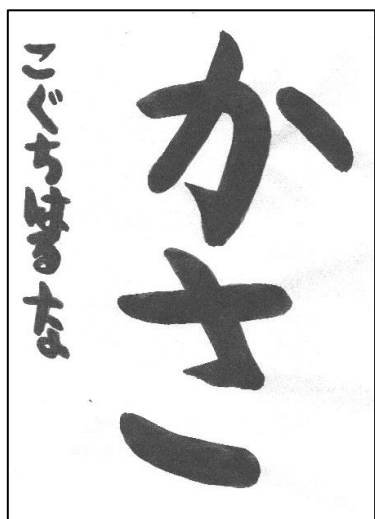 かさ
こぐちはるな